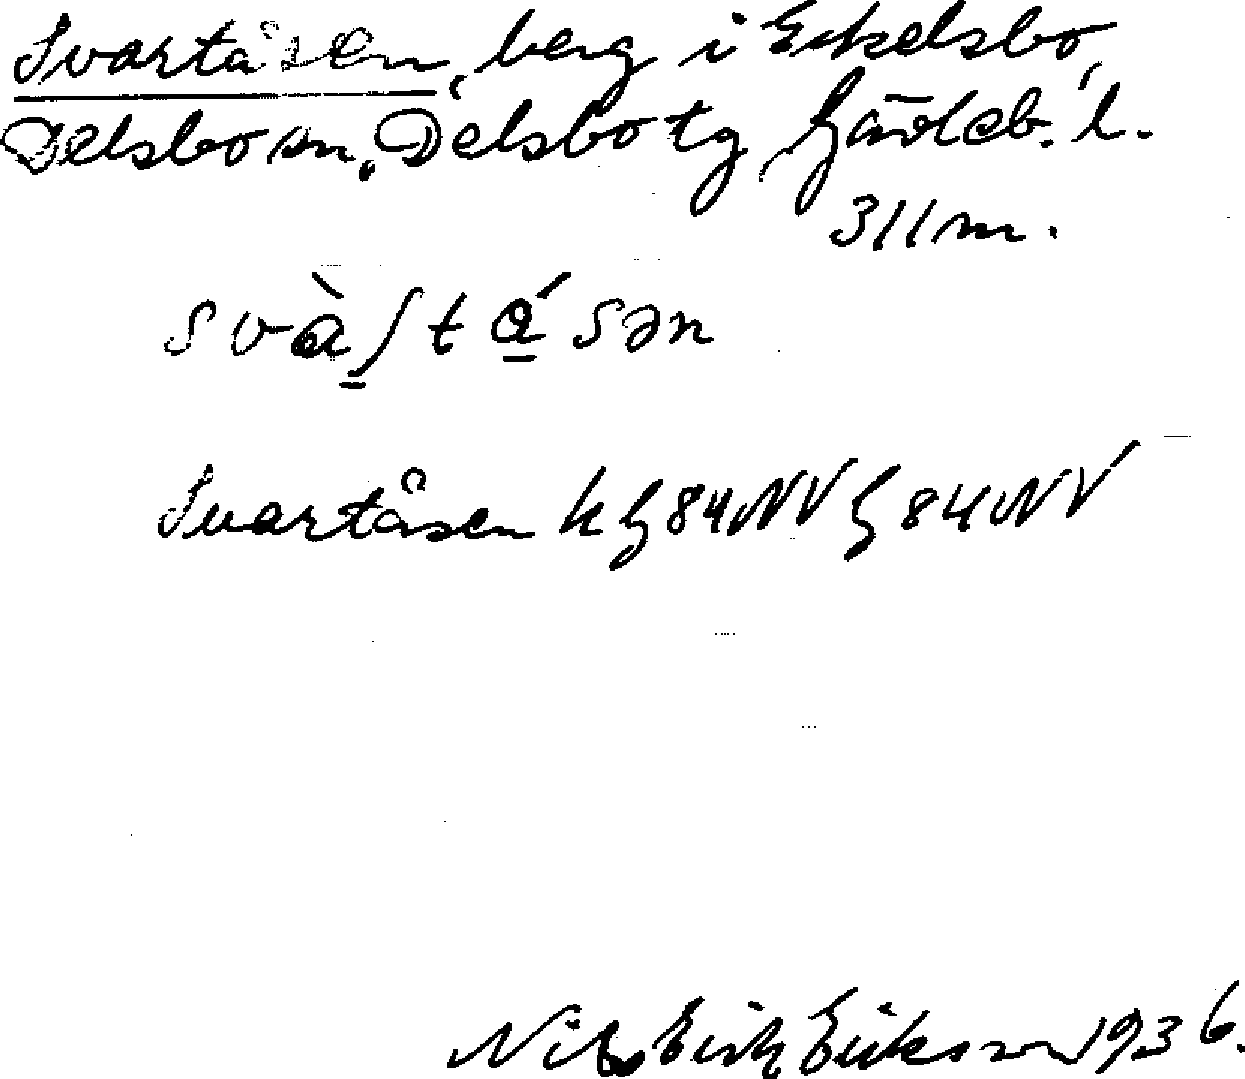 Svartåsen, berg i Eckelsbo,
Delsbo sn, Delsbo tg, Gävleb. l.
311 m.
Svartåsen k G 84 NV G 84 NV
Nils Erik Erikson 1936.